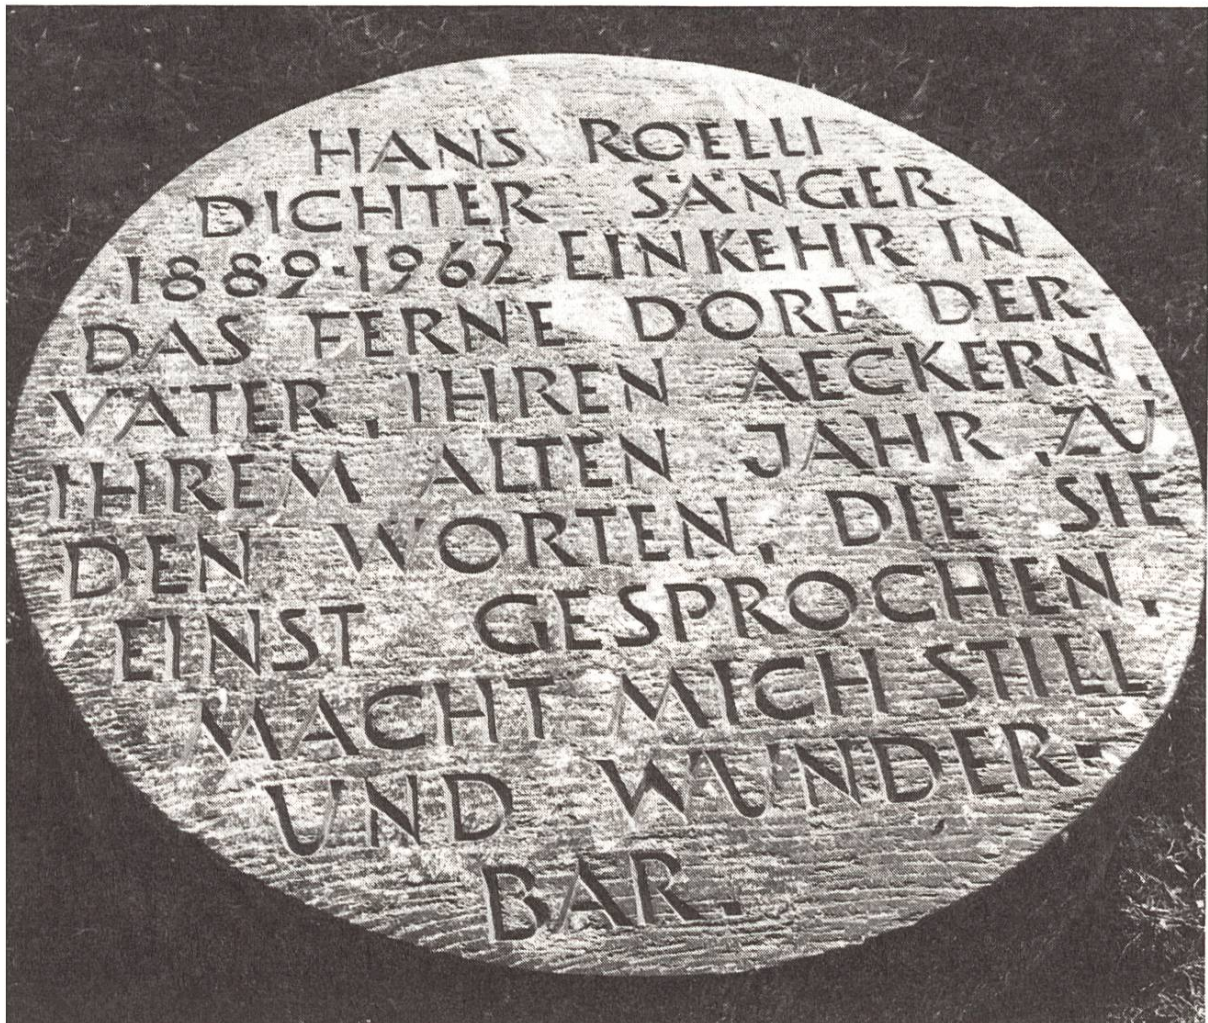 HANS ROELLI
DICHTER SÄNGER
1889·1962 EINKEHR IN
DAS FERNE DORF DER
VÄTER, IHREN AECKERN,
IHREM ALTEN JAHR, ZU
DEN WORTEN, DIE SIE
EINST GESPROCHEN,
MACHT MICH STILL
UND WUNDER-
BAR.